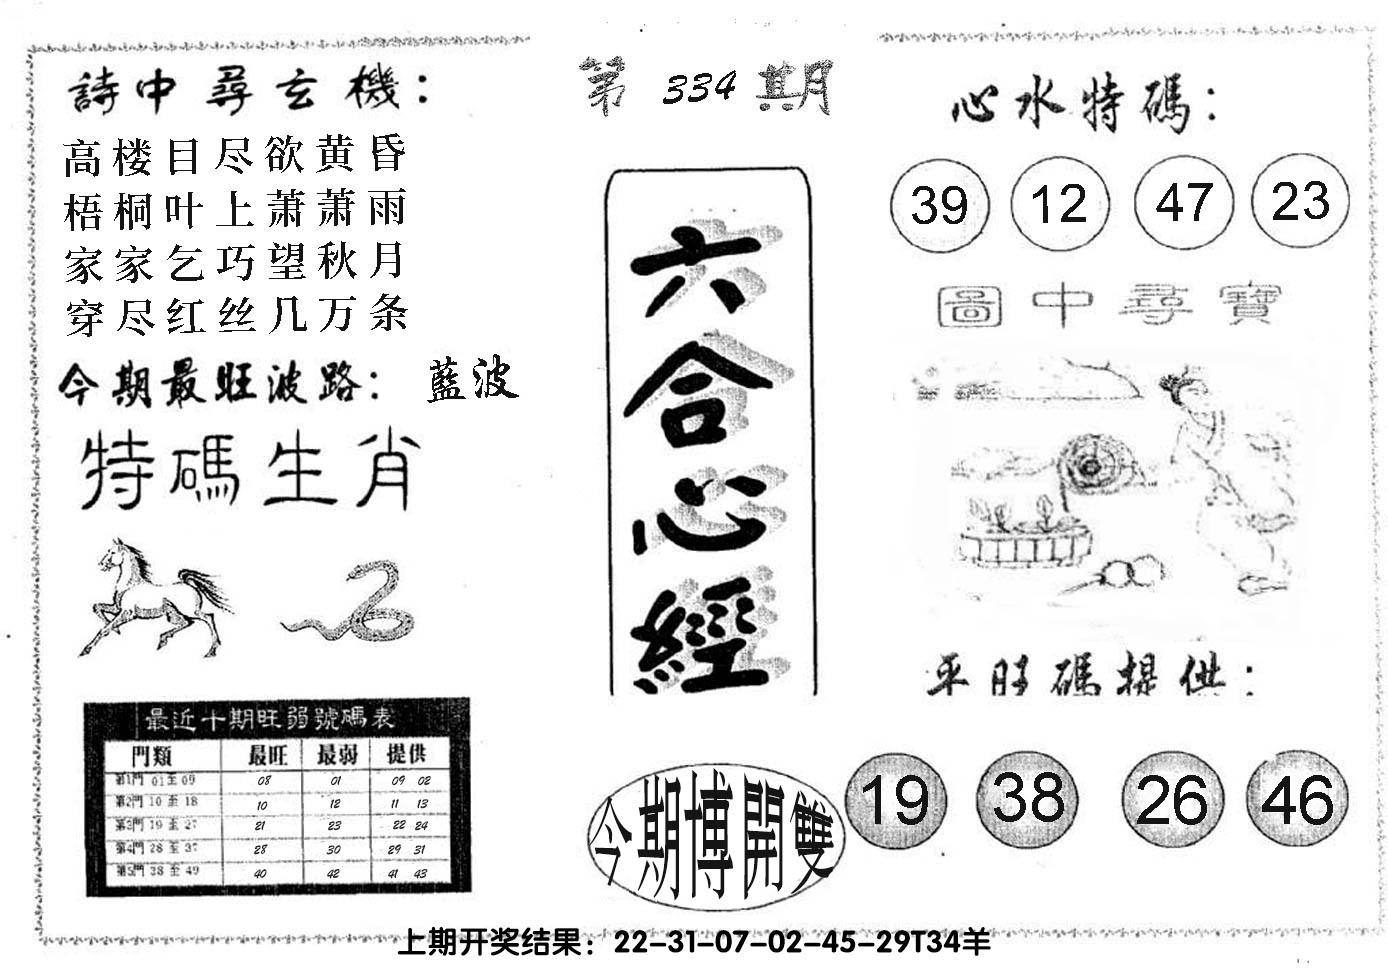 第 334 期
詩中尋玄機：
高楼目尽欲黄昏
梧桐叶上萧萧雨
家家乞巧望秋月
穿尽红丝几万条
今期最旺波路： 藍波
特碼生肖
最近十期旺弱號碼表
門類 最旺 最弱 提供
第1門 01至09 08 01 09 02
第2門 10至18 10 12 11 13
第3門 19至27 21 23 22 24
第4門 28至37 28 30 29 31
第5門 38至49 40 42 41 43
六合心經
今期博開雙
心水特碼：
39 12 47 23
圖中尋寶
平旺碼提供：
19 38 26 46
上期开奖结果：22-31-07-02-45-29T34羊